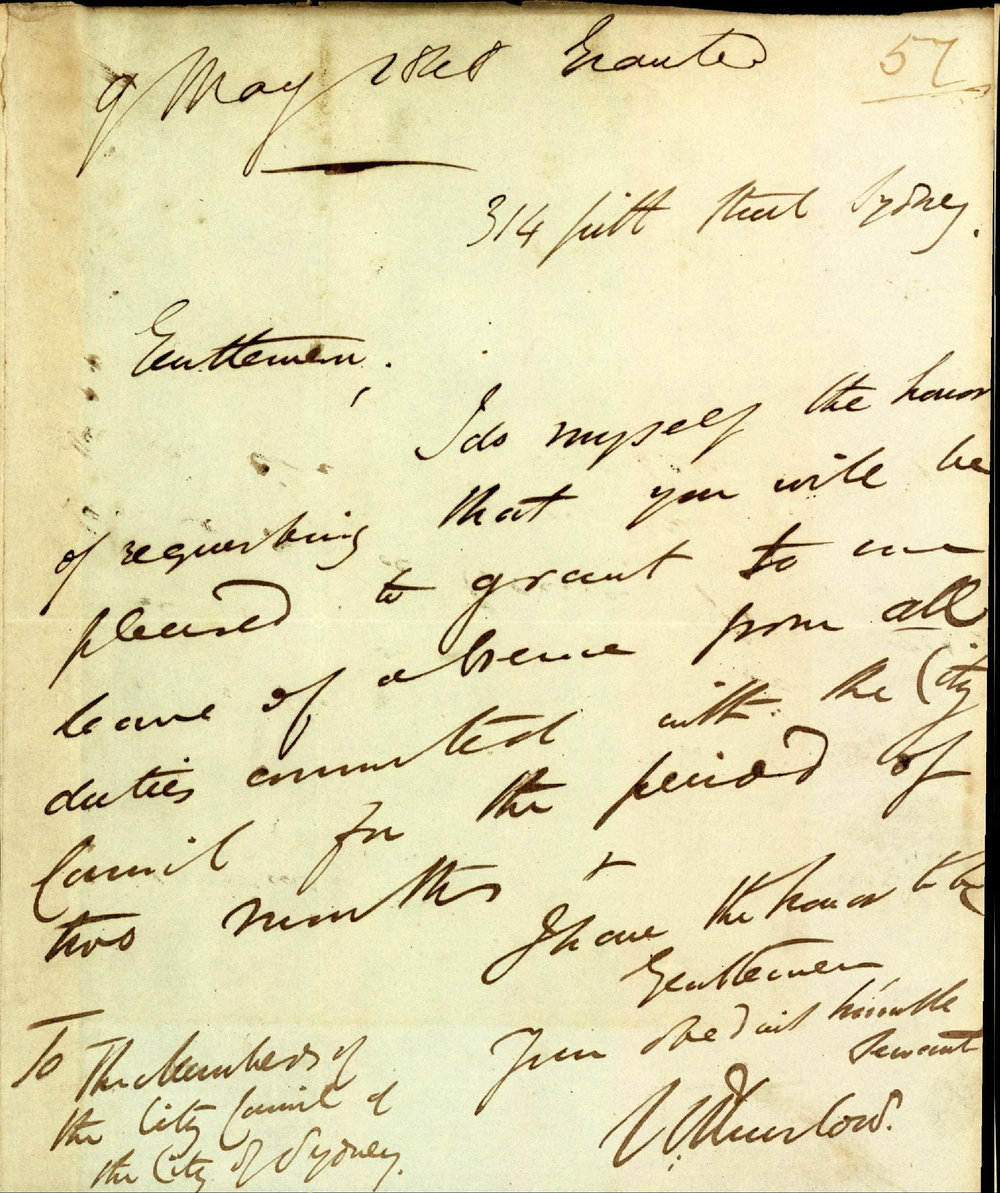 9 May 1848 Granted
57
314 pitt Street Sydney.
Gentlemen,
I do myself the honor
of requesting that you will be
pleased to grant to me
leave of absence from all
duties connected with the City
Council for the period of
two months
I have the honor to be
Gentlemen
Your obedient humble
Servant
W Thurlow.
To
The Members of
the City Council of
the City of Sydney.